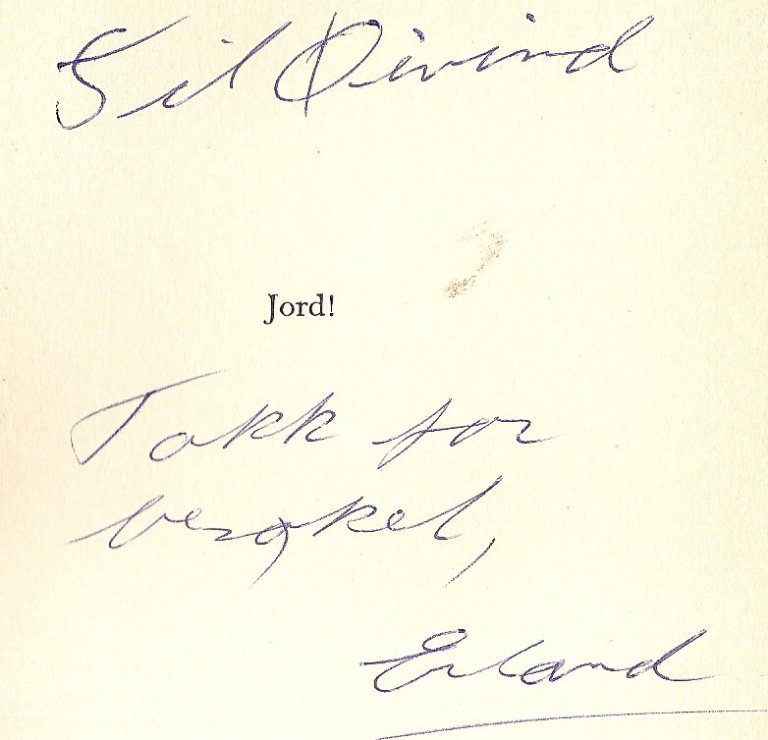 Til Øivind
Jord!
Takk for
besøket,
Erland